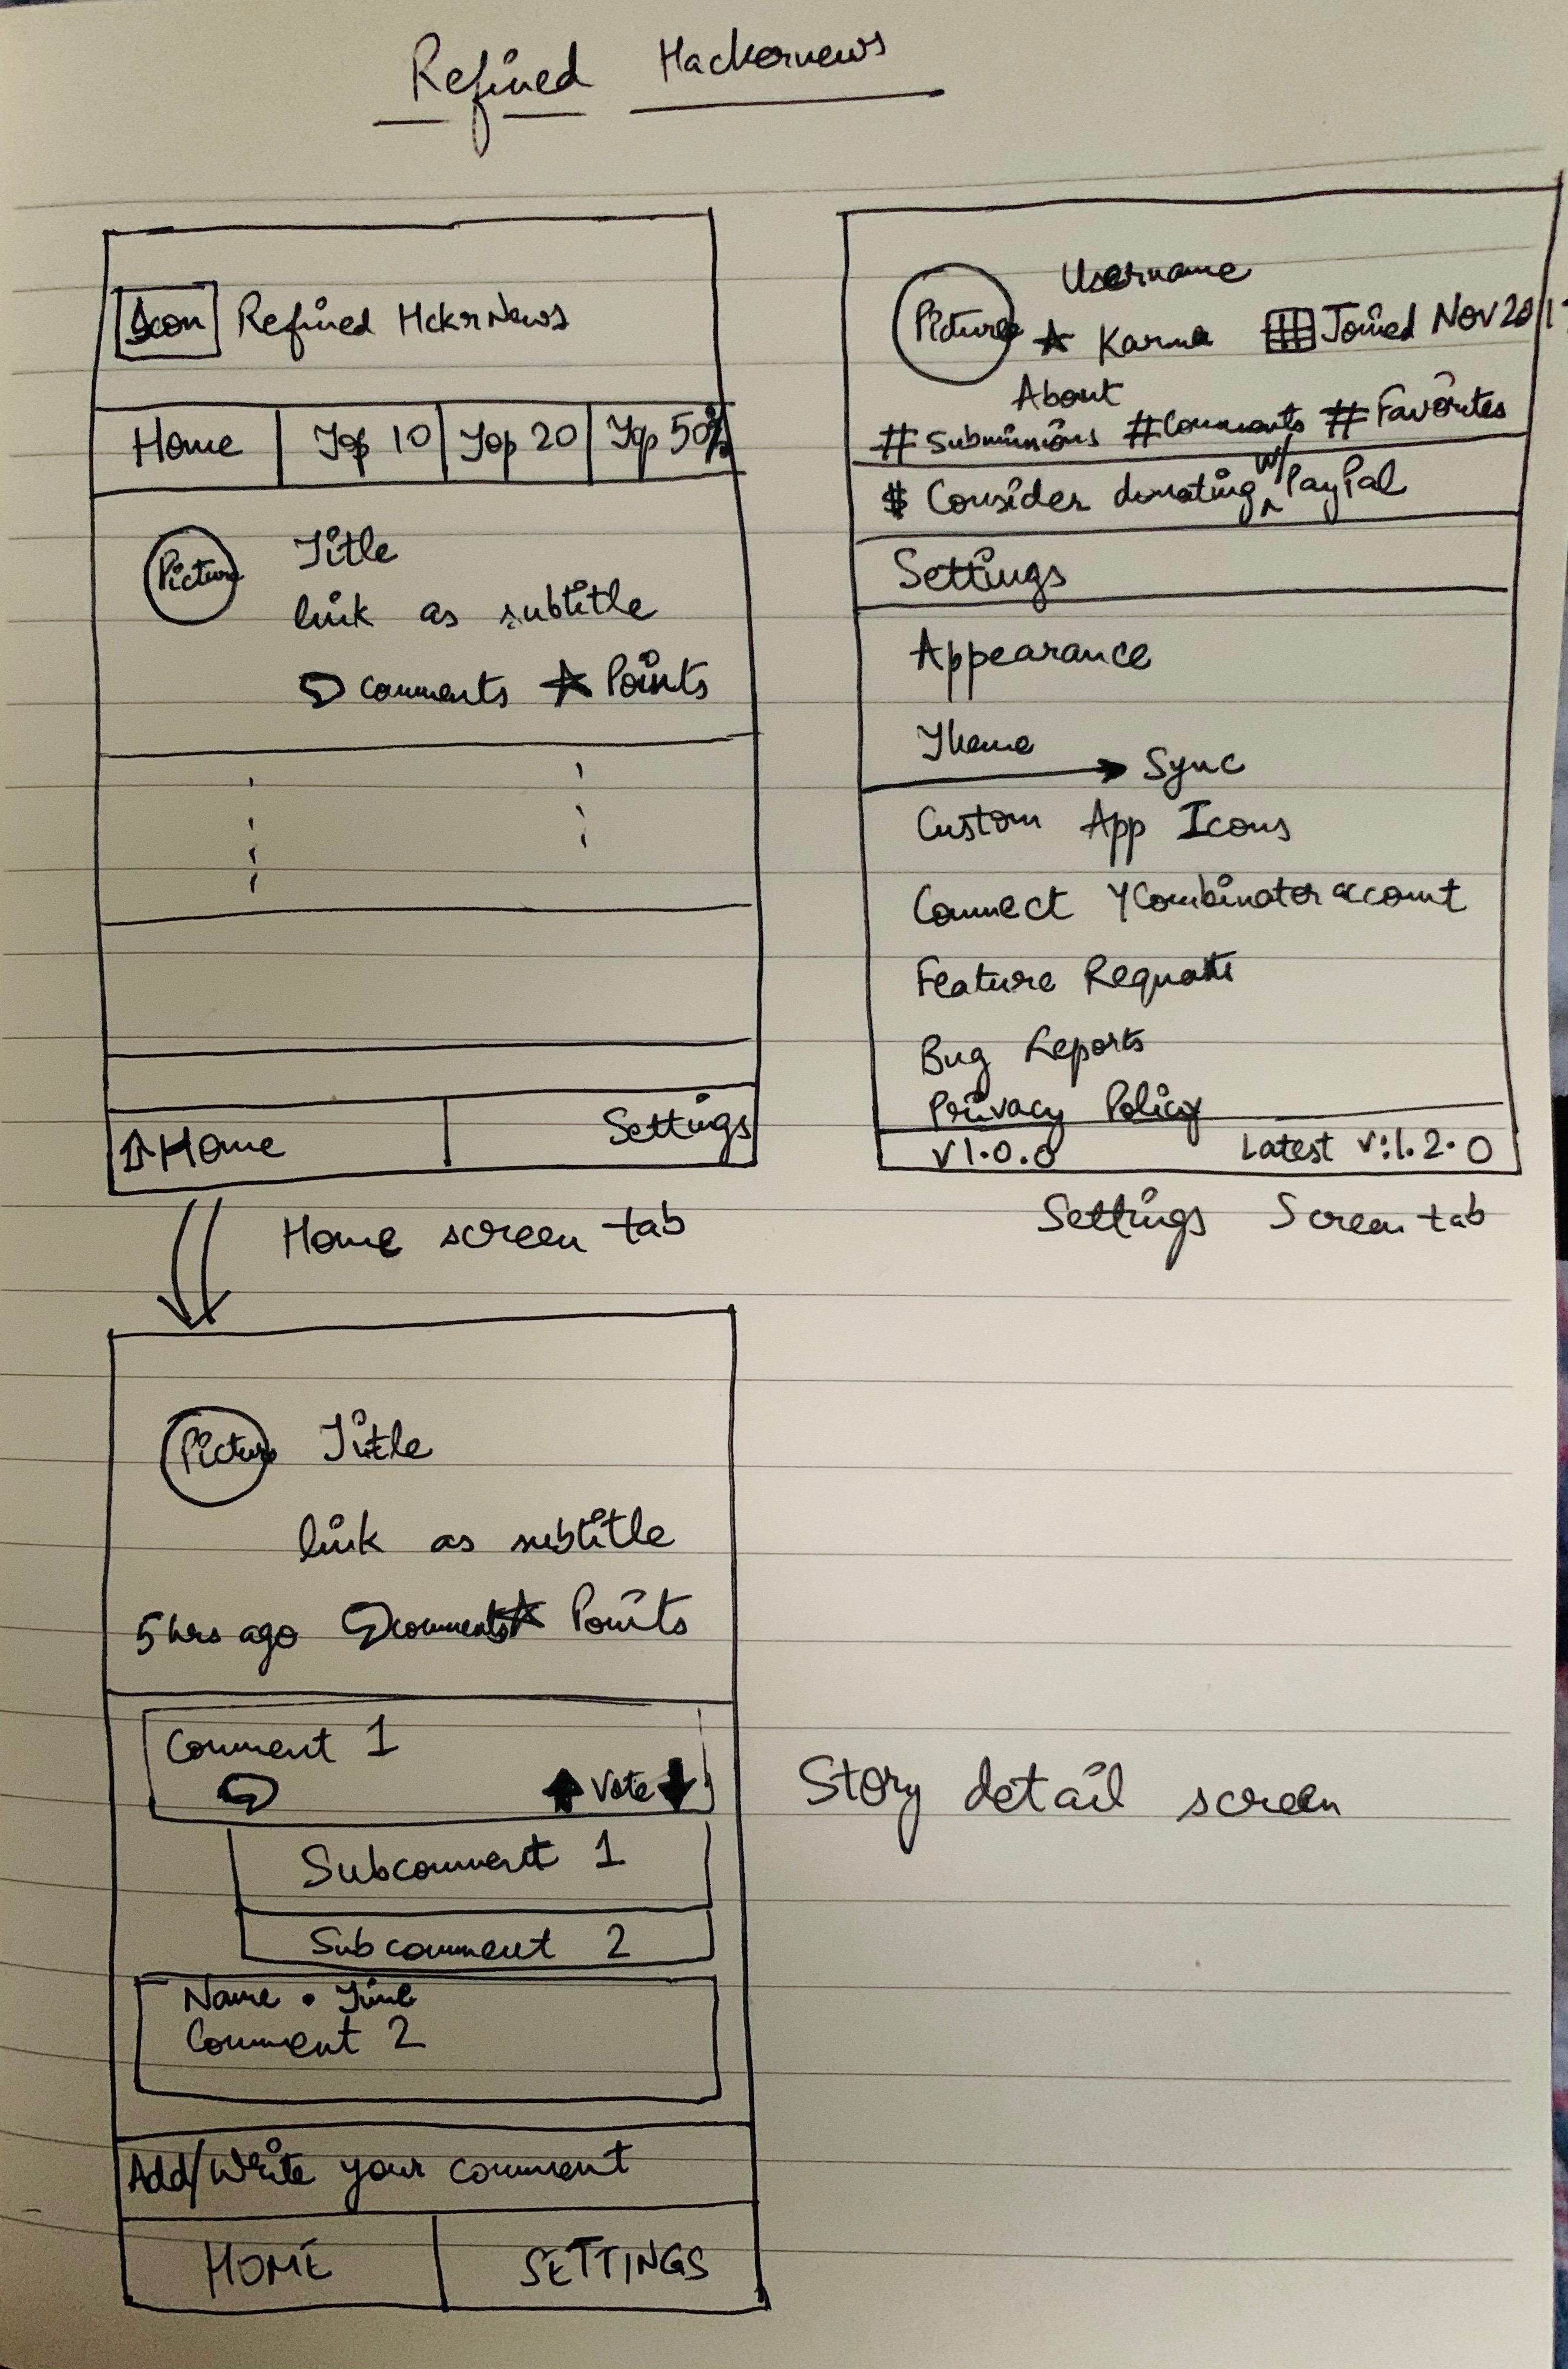 Refined Hackernews
Icon Refined HckrNews
Home Top 10 Top 20 Top 50%
Picture Title
link as subtitle
comments Points
Home Settings
Home screen tab
Picture Username
Karma Joined Nov 2017
About
# Submissions # Comments # Favorites
$ Consider donating w/ PayPal
Settings
Appearance
Theme
Sync
Custom App Icons
Connect YCombinator account
Feature Requests
Bug Reports
Privacy Policy
v1.0.0 Latest v:1.2.0
Settings Screen tab
Picture Title
link as subtitle
5 hrs ago comments Points
Comment 1
Vote
Subcomment 1
Subcomment 2
Name • Time
Comment 2
Add/Write your comment
HOME SETTINGS
Story detail screen